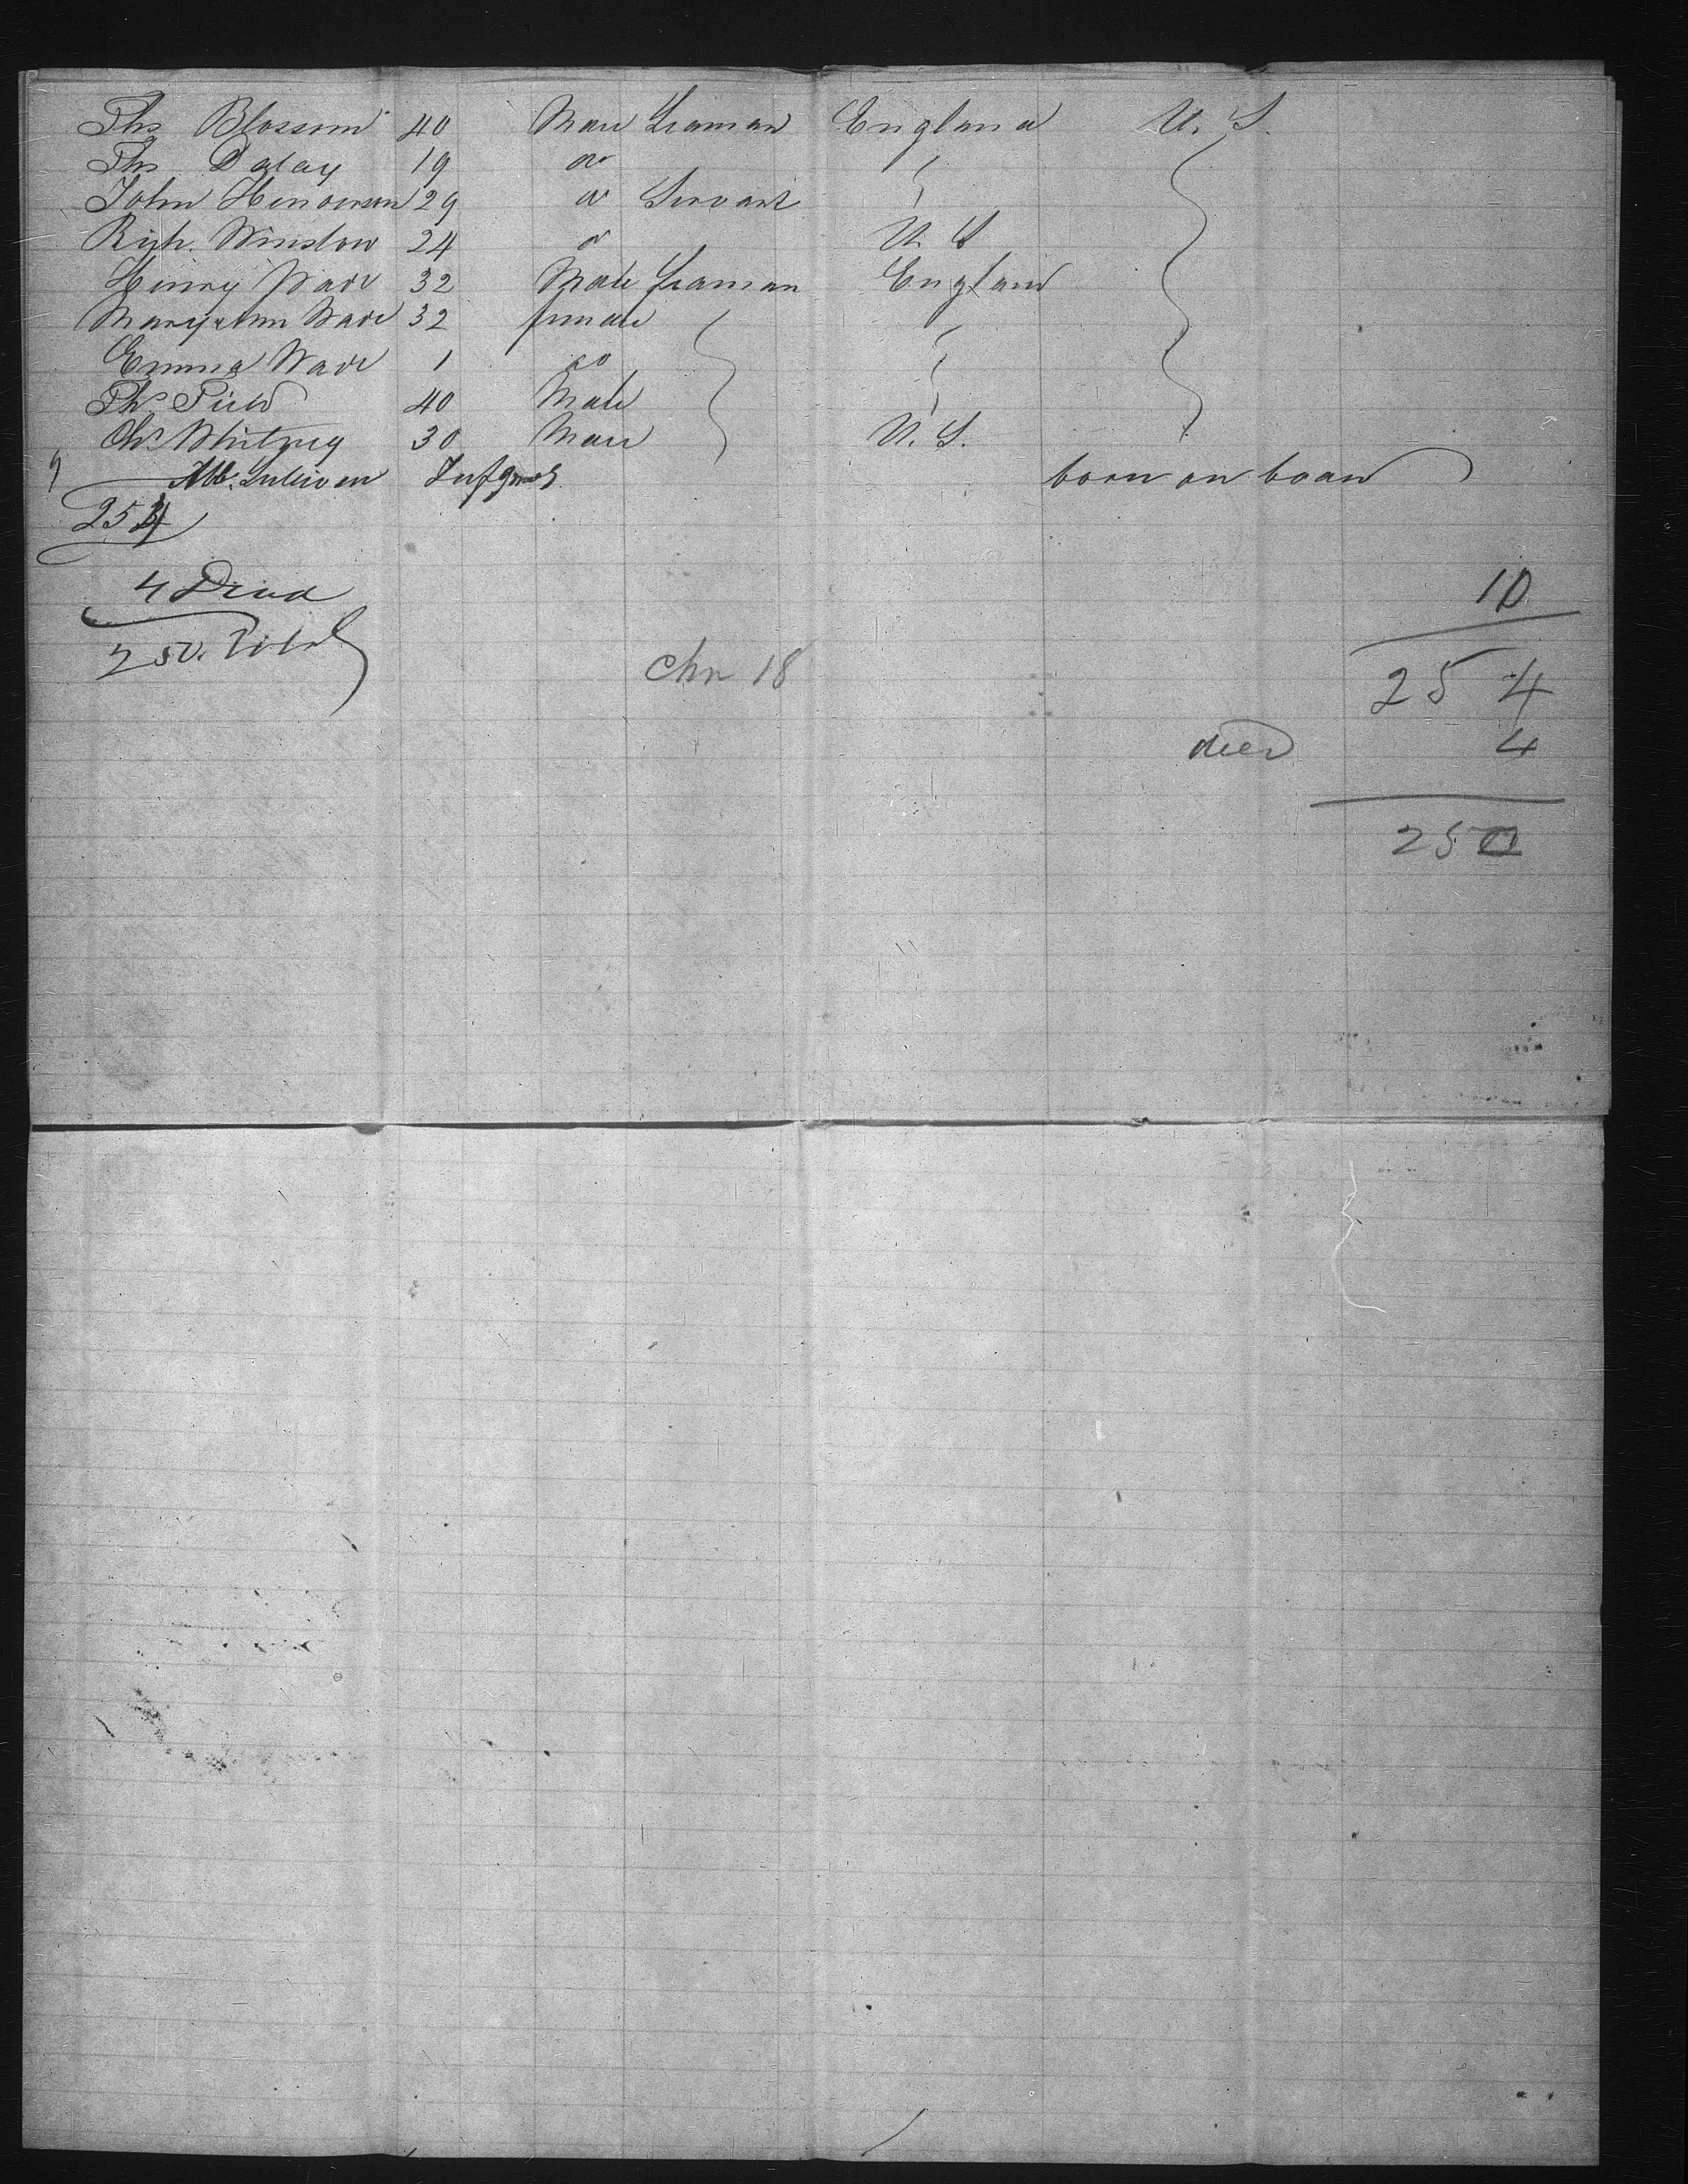 Ths Blossom 40 Male Seaman England U. S.
Ths Daley 19 do "
John Henderson 29 do Servant "
Rich. Winslow 24 do U S
Henry Wade 32 Male Seaman England
Maryann Wade 32 female "
Emma Wade 1 do "
Ths Field 40 Male "
Chs Whitney 30 Male U. S.
9 Sullivan Inf born on board
254
4 Died 10
250. Total 254
chn 18
died 4
250